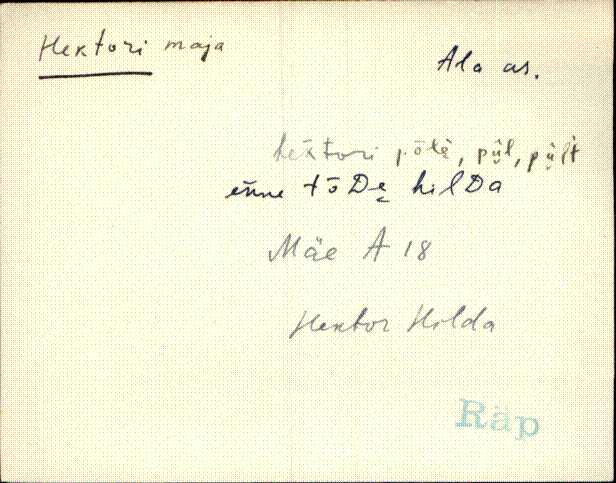 Hektori maja
Ala as.
hektori pōlè, pṳ̄l, pṳ̄l't
enne tōDe̬ hilDa
Mäe A 18
Hektor Hilda
Räp